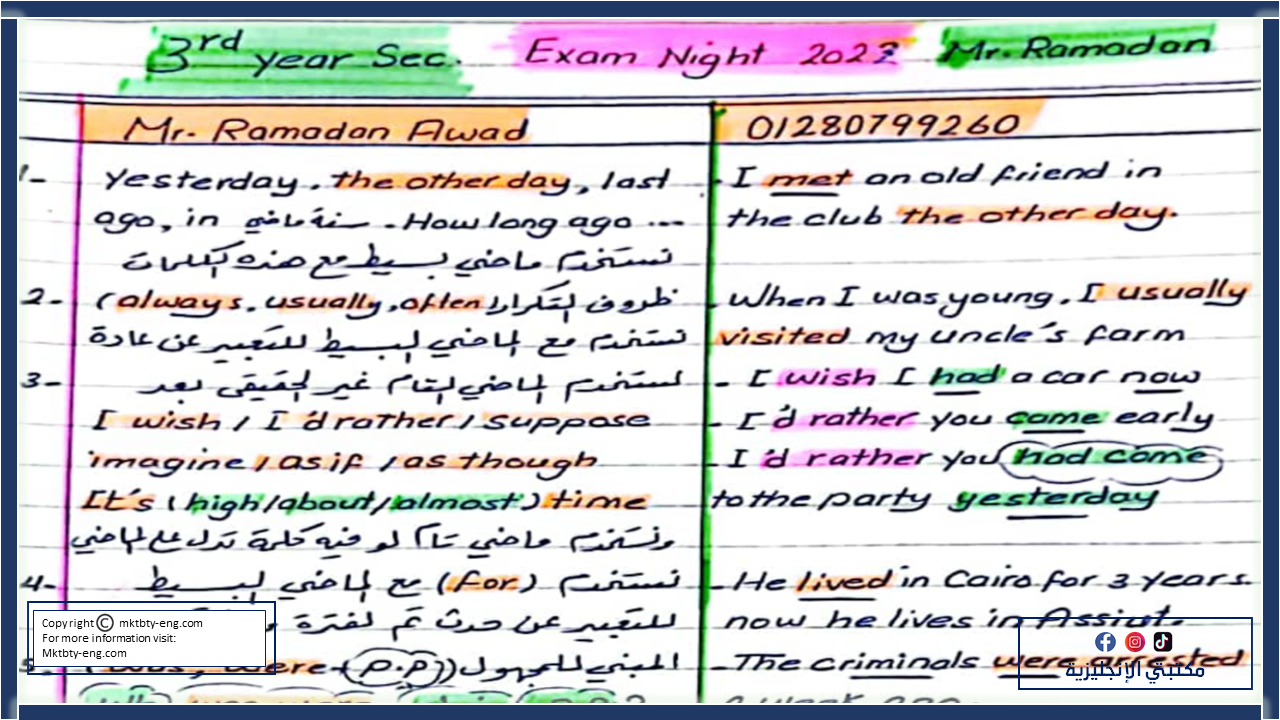 3rd year Sec. Exam Night 2023 Mr. Ramadan
Mr. Ramadan Awad 01280799260
1- yesterday, the other day, last - I met an old friend in
ago, in سنة ماضي . How long ago ... the club the other day.
نستخدم ماضي بسيط مع هذه الكلمات
2- (always, usually, often) ظروف التكرار - When I was young, I usually
نستخدم مع الماضي البسيط للتعبير عن عادة visited my uncle's farm
3- نستخدم الماضي التام غير الحقيقى بعد - I wish I had a car now
I wish / I'd rather / suppose - I'd rather you came early
imagine / as if / as though - I'd rather you had come
It's (high/about/almost) time to the party yesterday
ونستخدم ماضي تام لو فيه كلمة تدل على الماضي
4- نستخدم (for) مع الماضي البسيط - He lived in Cairo for 3 years.
للتعبير عن حدث تم لفترة now he lives in Assiut.
5. (was, were + (p.p)) المبني للمجهول - The criminals were arrested
a week ago.
Copyright © mktbty-eng.com
For more information visit:
Mktbty-eng.com
مكتبتي الإنجليزية